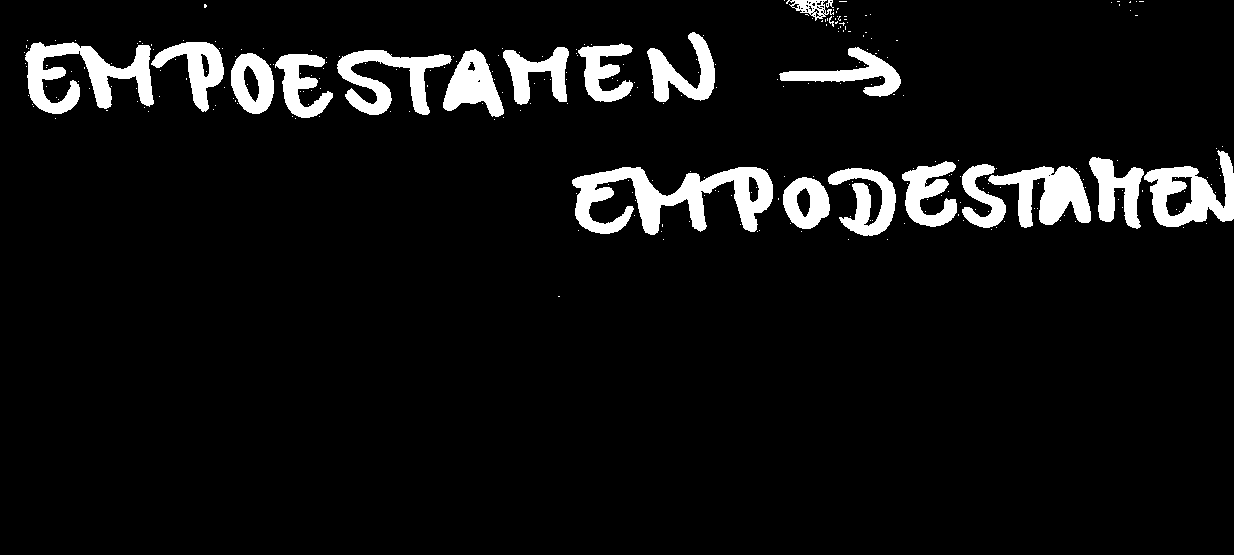 EMPOESTAMEN →
EMPODESTAMEN